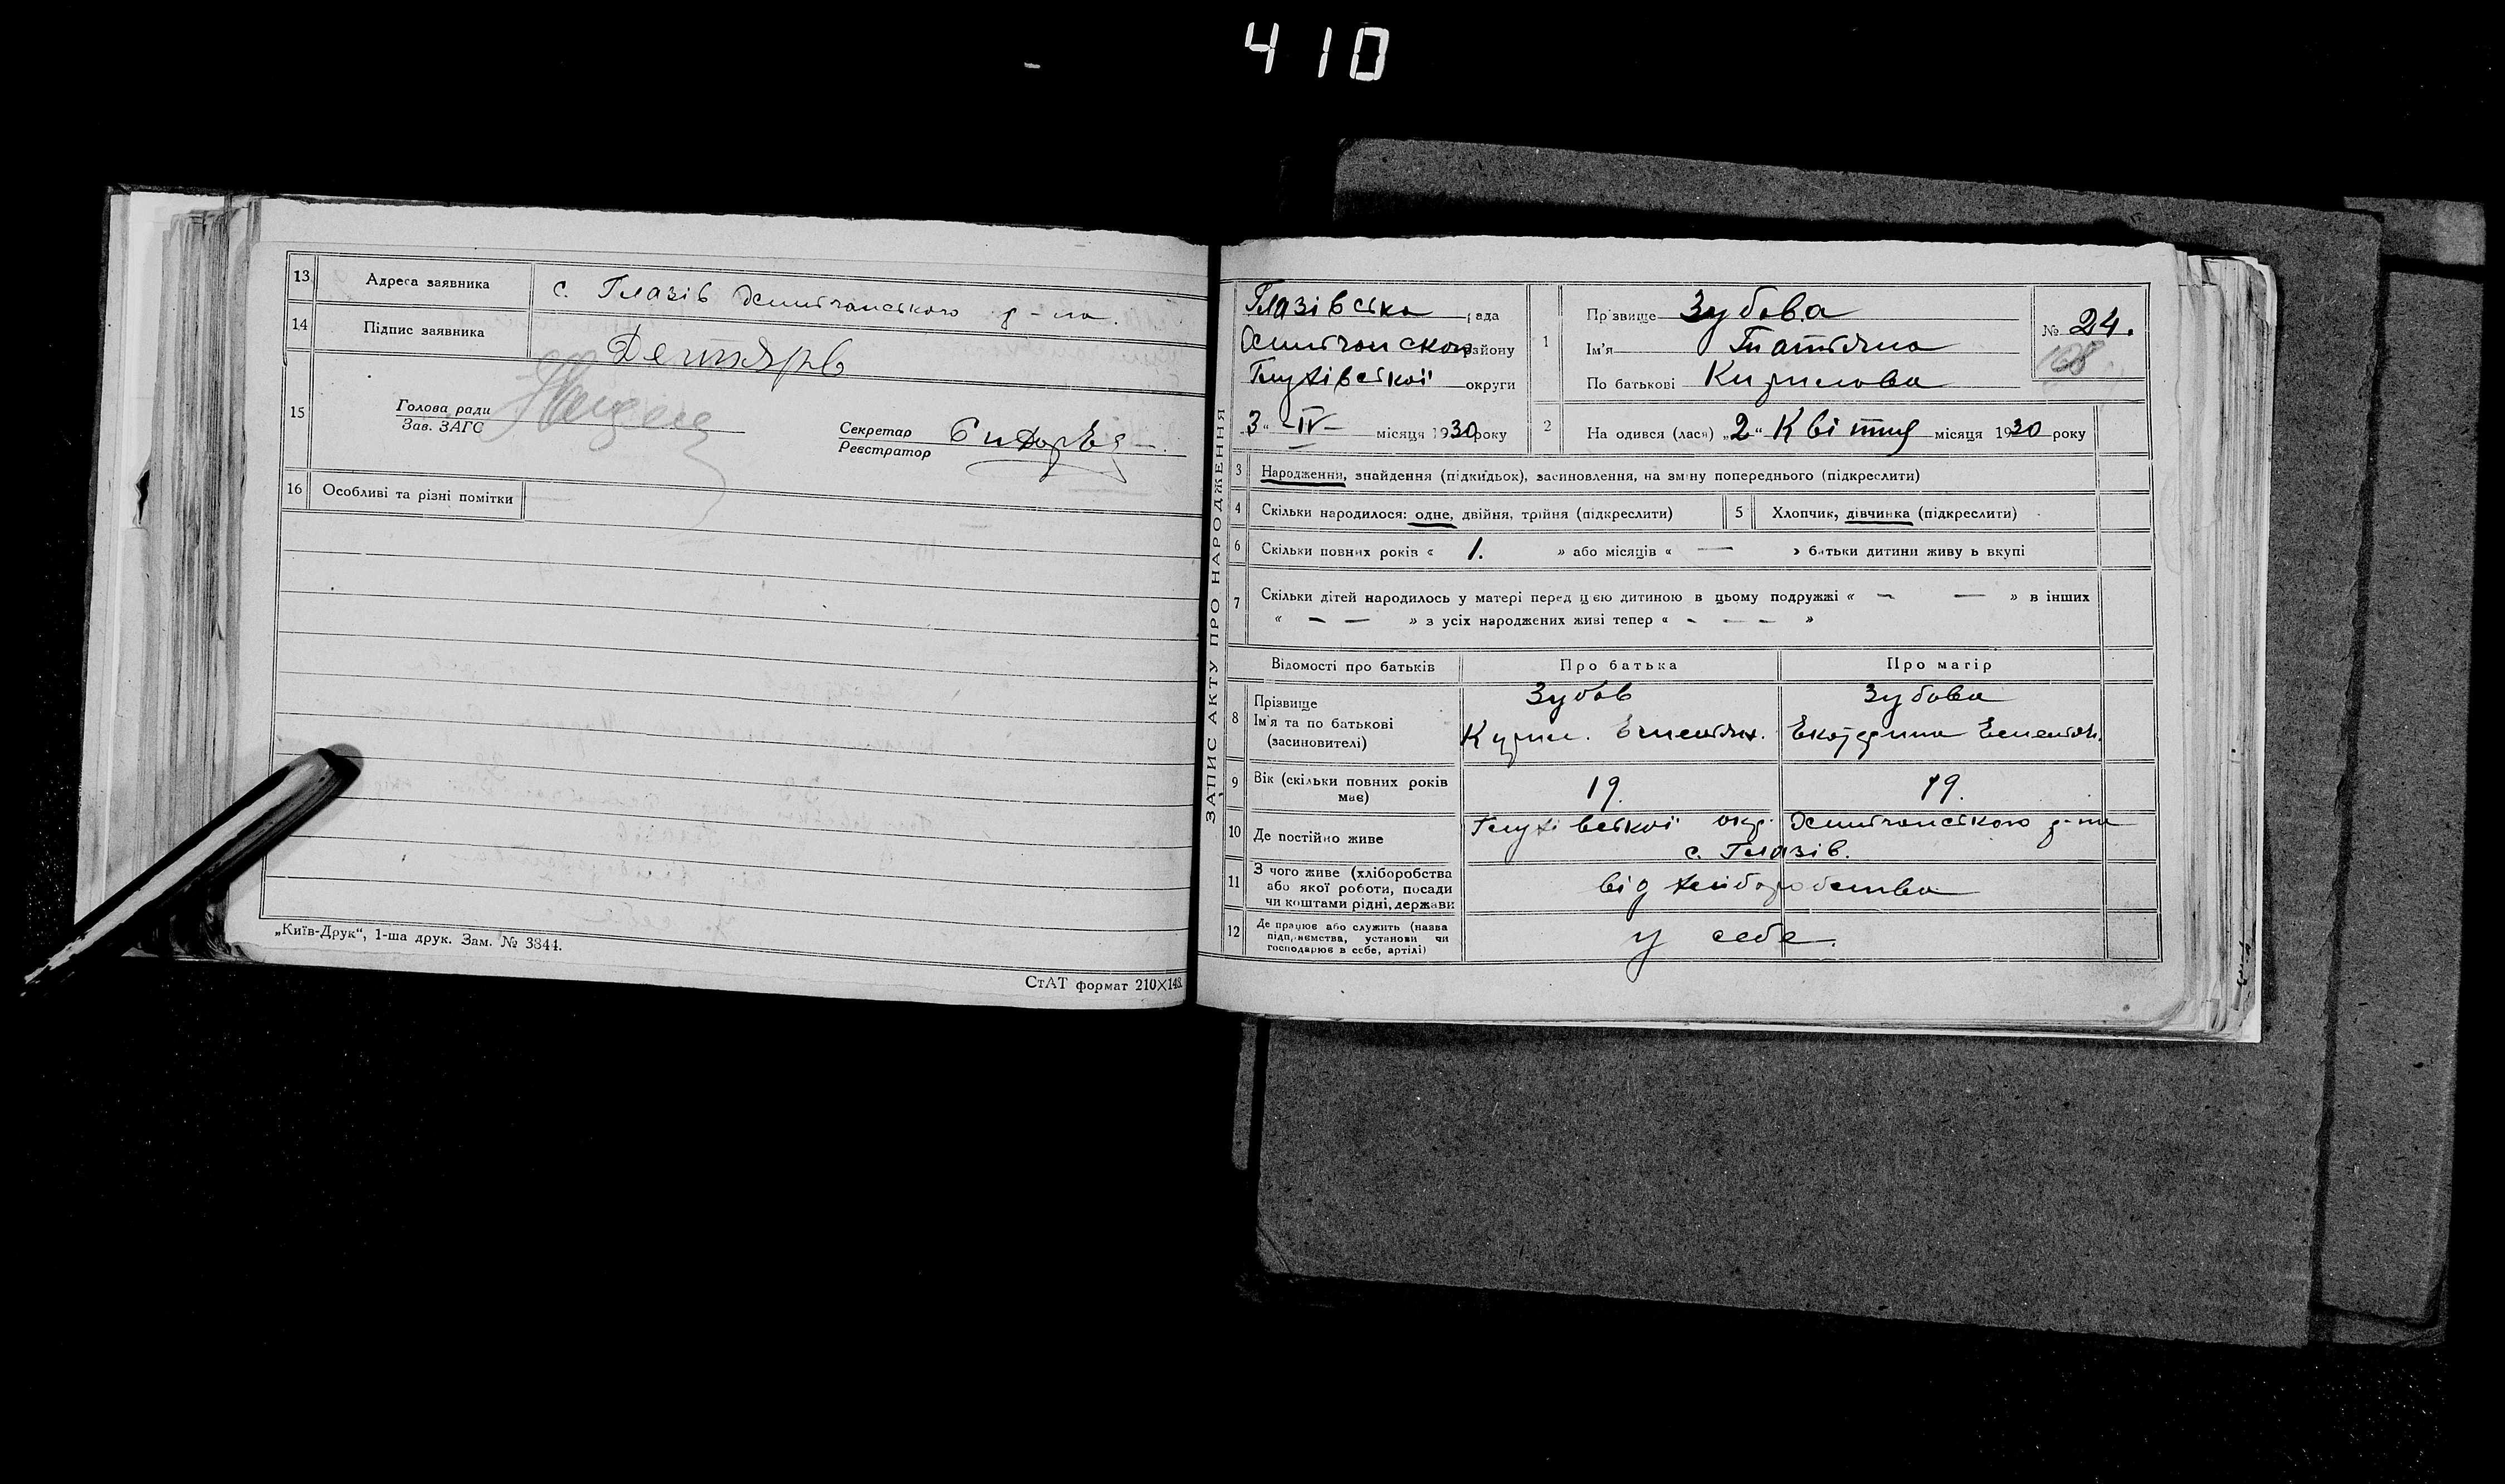 410
13 Адреса заявника с. Глазів Эсманського р-на.
14 Підпис заявника Дегтярь
15 Голова ради
Зав. ЗАГС
Секретар
Реєстратор
16 Особливі та різні помітки
„Київ-Друк“, 1-ша друк. Зам. № 3844.
СтАТ формат 210×148.
ЗАПИС АКТУ ПРО НАРОДЖЕННЯ
Глазівська рада
району
Глухівської округи
3 “ IV місяця 1930 року
1 Прізвище Зубова
Ім'я Татьяна
По батькові Кирилова
№ 24.
108
2 Народився (лася) „2“ Квітня місяця 1930 року
3 Народження, знайдення (підкидьок), засиновлення, на зміну попереднього (підкреслити)
4 Скільки народилося: одне, двійня, трійня (підкреслити)
5 Хлопчик, дівчинка (підкреслити)
6 Скільки повних років « 1. » або місяців « — » батьки дитини живуть вкупі
7 Скільки дітей народилось у матері перед цією дитиною в цьому подружжі « — — » в інших
« — — » з усіх народжених живі тепер « - - - - »
Відомості про батьків Про батька Про матір
8 Прізвище Зубов Зубова
Ім'я та по батькові Кирил.
(засновителі)
9 Вік (скільки повних років 19. 19.
має)
10 Де постійно живе Глухівської окр. Эсманського р-ни
с. Глазів.
11 З чого живе (хліборобства
або якої роботи, посади від хліборобства
чи коштами рідні, держави
12 Де працює або служить (назва
підприємства, установи чи у себе.
господарює в себе, артілі)